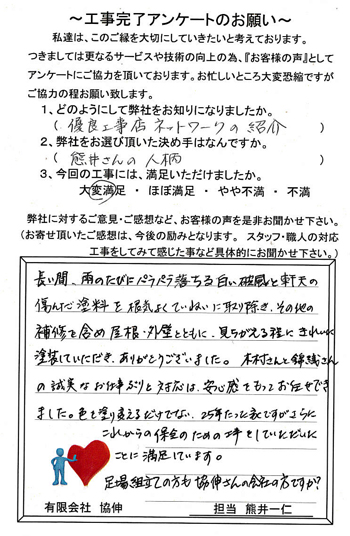 ～工事完了アンケートのお願い～
私達は、このご縁を大切にしていきたいと考えております。
つきましては更なるサービスや技術の向上の為、『お客様の声』として
アンケートにご協力を頂いております。お忙しいところ大変恐縮ですが
ご協力の程お願い致します。
1、どのようにして弊社をお知りになりましたか。
( 優良工事店ネットワークの紹介 )
2、弊社をお選び頂いた決め手はなんですか。
( 熊井さんの人柄 )
3、今回の工事には、満足いただけましたか。
大変満足 ・ ほぼ満足 ・ やや不満 ・ 不満
弊社に対するご意見・ご感想など、お客様の声を是非お聞かせ下さい。
(お寄せ頂いたご感想は、今後の励みとなります。 スタッフ・職人の対応
工事をしてみて感じた事など具体的にお聞かせ下さい。)
長い間、雨のたびにパラパラ落ちる白い破風と軒天の
傷んだ塗料を根気よくていねいに取り除き、その他の
補修を含め屋根・外壁とともに、見ちがえる程にきれいに
塗装していただき、ありがとうございました。 木村さんと錦織さん
の誠実なお仕事ぶりと対応は、安心感をもってお任せでき
ました。色を塗り変えるだけでない、25年たった家ですがさらに
これからの保全のための工事をしていただいた
ことに満足しています。
足場組立ての方も協伸さんの会社の方ですか?
有限会社 協伸
担当 熊井一仁